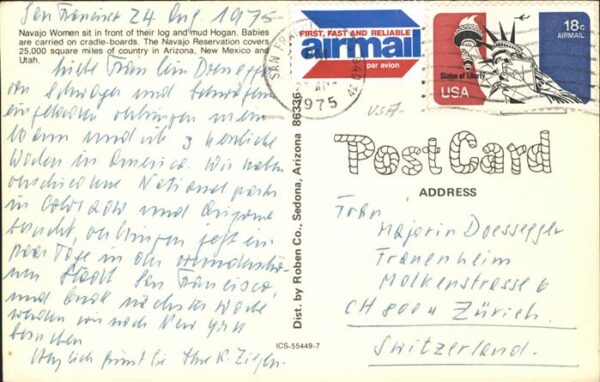 San Francisco 24 Aug. 1975
Navajo Women sit in front of their log and mud Hogan. Babies
are carried on cradle-boards. The Navajo Reservation covers
25,000 square miles of country in Arizona, New Mexico and
Utah.
Fräulein Doessegger
Schwager und
eingeladen verbringen mein
Mann und ich 3 herrliche
Wochen in America. Wir haben
verschiedene National parks
in Colorado und Arizona
besucht, verbringen jetzt ein
paar Tage in der wunderschö-
nen Stadt San Francisco,
und Ende nächster Woche
werden wir noch New York
besuchen
Herzlich grüsst Sie Ihre K. Ziegler.
Dist. by Roben Co., Sedona, Arizona 86336
ICS-55449-7
FIRST, FAST AND RELIABLE
airmail
par avion
SAN FR
1975
18c
AIRMAIL
Statue of Liberty
USA
USA
Post Card
ADDRESS
Frau
Majorin Doessegger
Frauenheim
Molkenstrasse 6
CH 8004 Zürich
Switzerland.